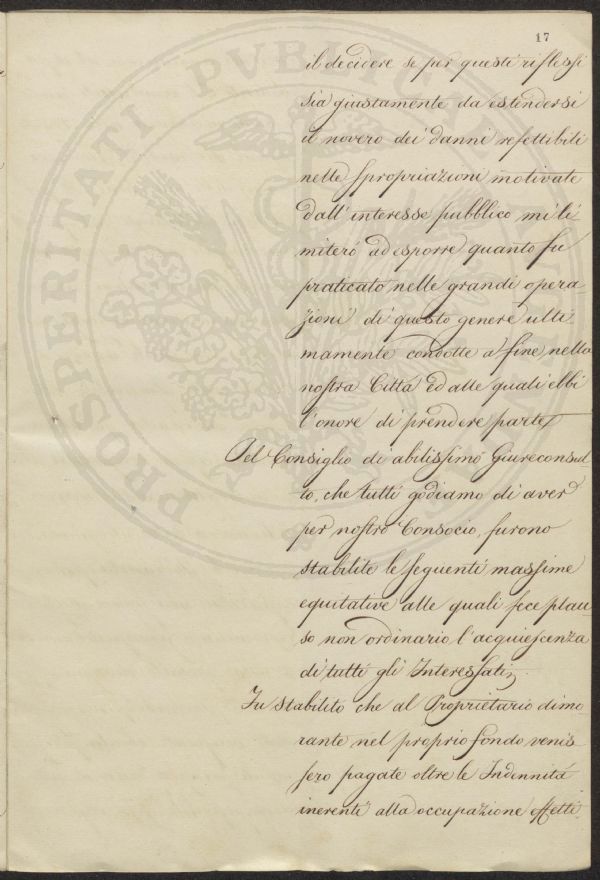 17
il decidere se per questi riflessi
sia giustamente da estendersi
il novero dei danni refettibili
nelle spropriazioni motivate
dall'interesse pubblico mi li
miteró ad esporre quanto fu
praticato nelle grandi opera
zioni di questo genere ulti
mamente condotte a fine nella
nostra Cittá ed alle quali ebbi
l'onore di prendere parte
Pel Consiglio di abilissimo Giureconsul
to, che tutti godiamo di aver
per nostro Consocio, furono
stabilite le seguenti massime
equitative alle quali fece plau
so non ordinario l'acquiescenza
di tutti gli Interessati.
Fu stabilito che al Proprietario dimo
rante nel proprio fondo venis
sero pagate oltre le Indennitá
inerenti alla occupazione effetti
PROSPERITATI PVBLICAE